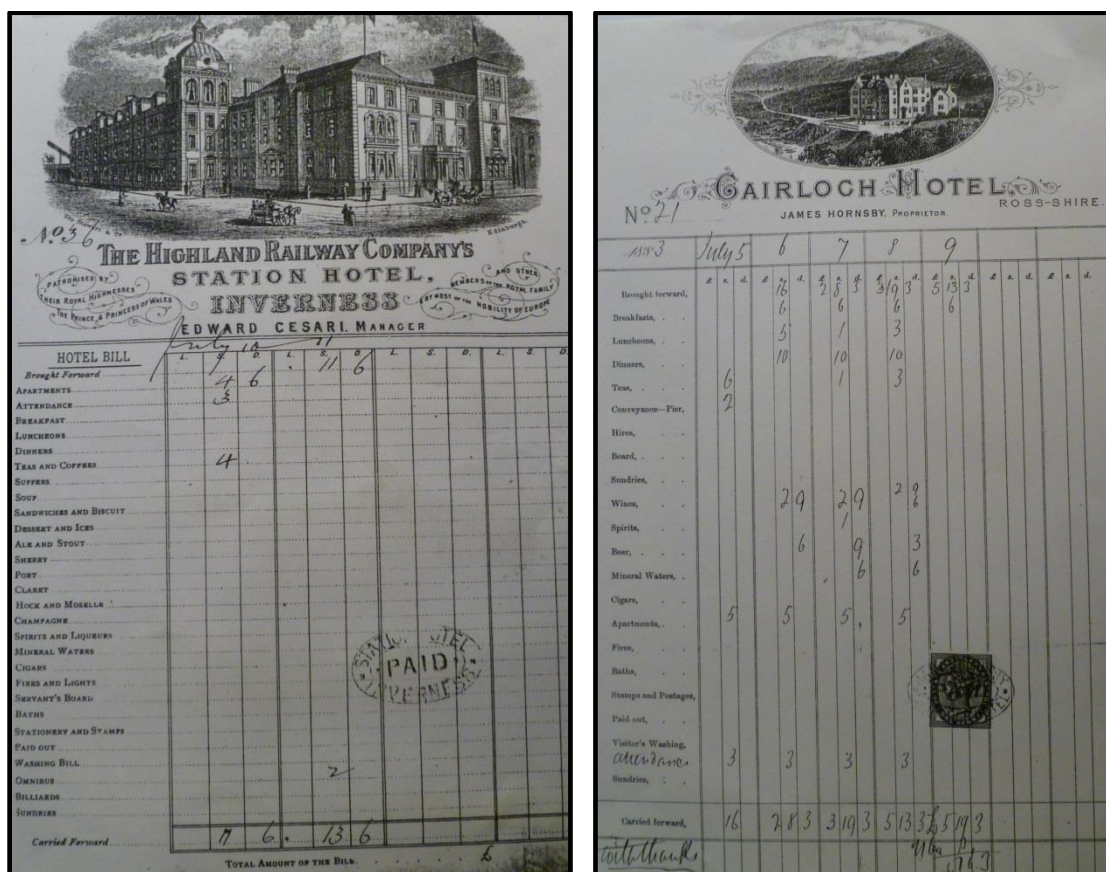 Nº 36
Edinburgh.
THE HIGHLAND RAILWAY COMPANY'S
STATION HOTEL,
INVERNESS
PATRONISED BY
THEIR ROYAL HIGHNESSES
THE PRINCE & PRINCESS OF WALES
AND OTHER
MEMBERS OF THE ROYAL FAMILY
& BY MOST OF THE NOBILITY OF EUROPE
EDWARD CESARI, MANAGER
July 10 11
HOTEL BILL L. S. D. L. S. D. L. S. D. L. S. D.
Brought Forward 11 6
APARTMENTS 4 6
ATTENDANCE 3
BREAKFAST
LUNCHEONS
DINNERS
TEAS AND COFFEES 4
SUPPERS
SOUP
SANDWICHES AND BISCUIT
DESSERT AND ICES
ALE AND STOUT
SHERRY
PORT
CLARET
HOCK AND MOSELLE
CHAMPAGNE
SPIRITS AND LIQUEURS
MINERAL WATERS
CIGARS
FIRES AND LIGHTS
SERVANT'S BOARD
BATHS
STATIONERY AND STAMPS
PAID OUT
WASHING BILL
OMNIBUS 2
BILLIARDS
SUNDRIES
Carried Forward 11 6 13 6
TOTAL AMOUNT OF THE BILL. £
STATION HOTEL
PAID
INVERNESS
GAIRLOCH HOTEL,
ROSS-SHIRE.
Nº 21
JAMES HORNSBY, PROPRIETOR.
1883 July 5 6 7 8 9
£ s. d. £ s. d. £ s. d. £ s. d. £ s. d. £ s. d. £ s. d.
Brought forward, 16 2 8 3 3 19 3 5 13 3
Breakfasts, . . 6 6 6 6
Luncheons, . . 5 1 3
Dinners, . . 10 10 10
Teas, . . . 6 1 3
Conveyance—Pier, 2
Hires, . . .
Board, . . .
Sundries, . . .
Wines, . . . 2 9 2 9 2 9
Spirits, . . . 1 6
Beer, . . . 6 9 3
Mineral Waters, . 6 6
Cigars, . . .
Apartments, . . 5 5 5 5
Fires, . . .
Baths, . . .
Stamps and Postages,
Paid out, . .
Visitor's Washing,
attendance 3 3 3 3
Sundries, . . .
Carried forward, 16 2 8 3 3 19 3 5 13 3 £5 19 3
with thanks